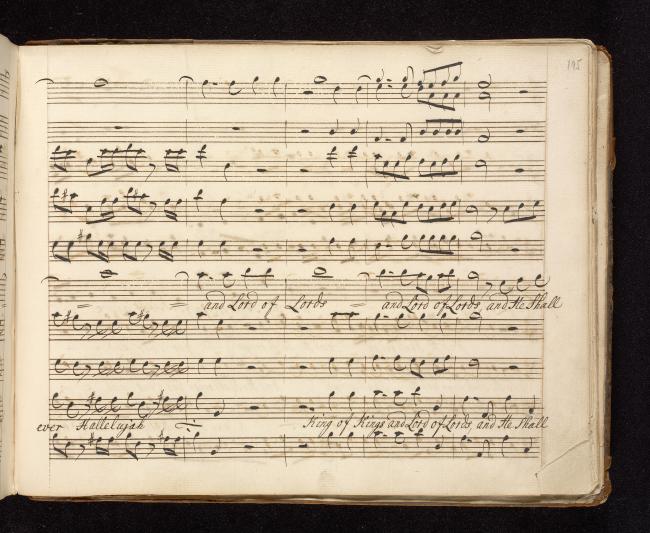 195
and Lord of Lords = and Lord of Lords, and He Shall
ever Hallelujah King of Kings and Lord of Lords, and He Shall